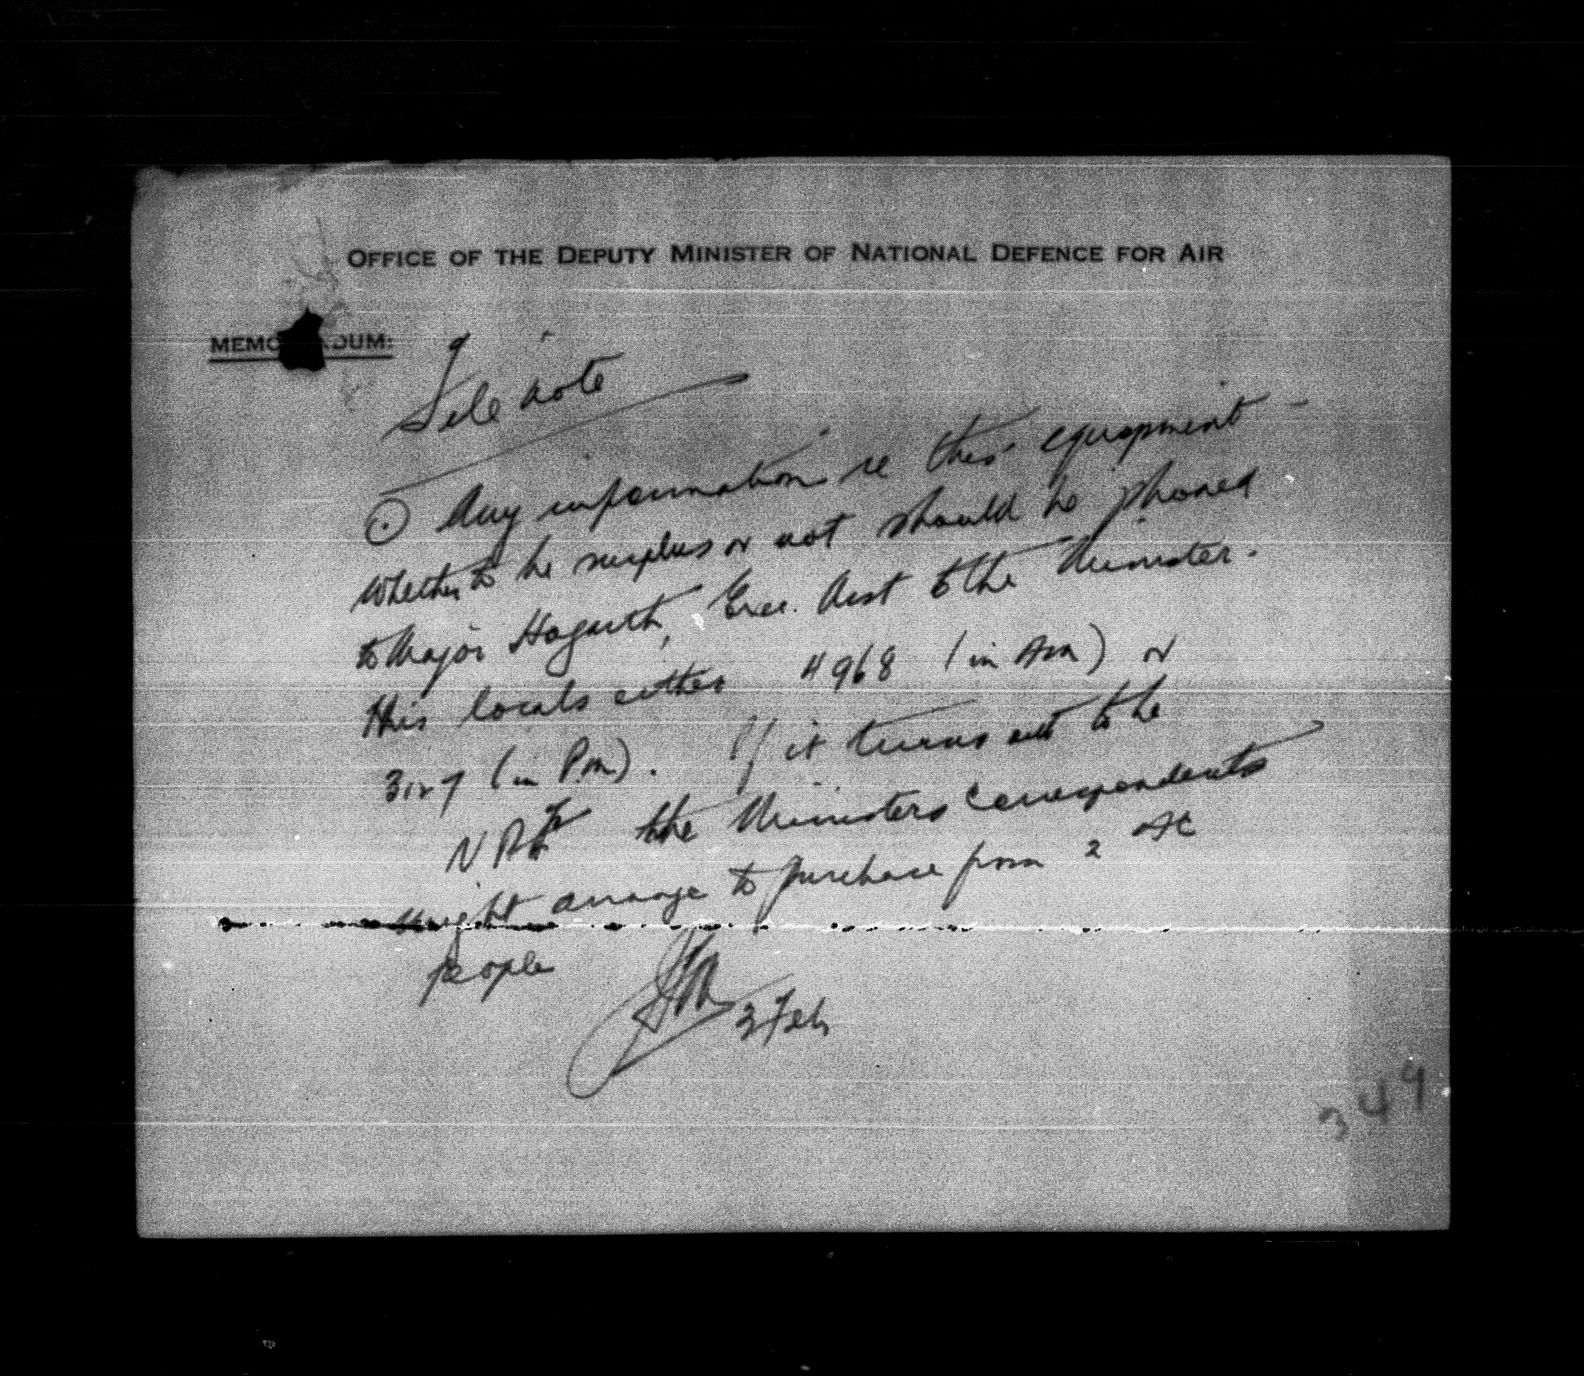 OFFICE OF THE DEPUTY MINISTER OF NATIONAL DEFENCE FOR AIR
MEMO DUM:
File note
Any information re this equipment
whether to be surplus or not should be phoned
to Major Hogarth, Exec. Asst to the Minister.
His locals either 4968 (in Am) or
3127 (in P.m.). If it turns out to be
the Ministers Correspondents
might arrange to purchase from
people
3 Feb
349